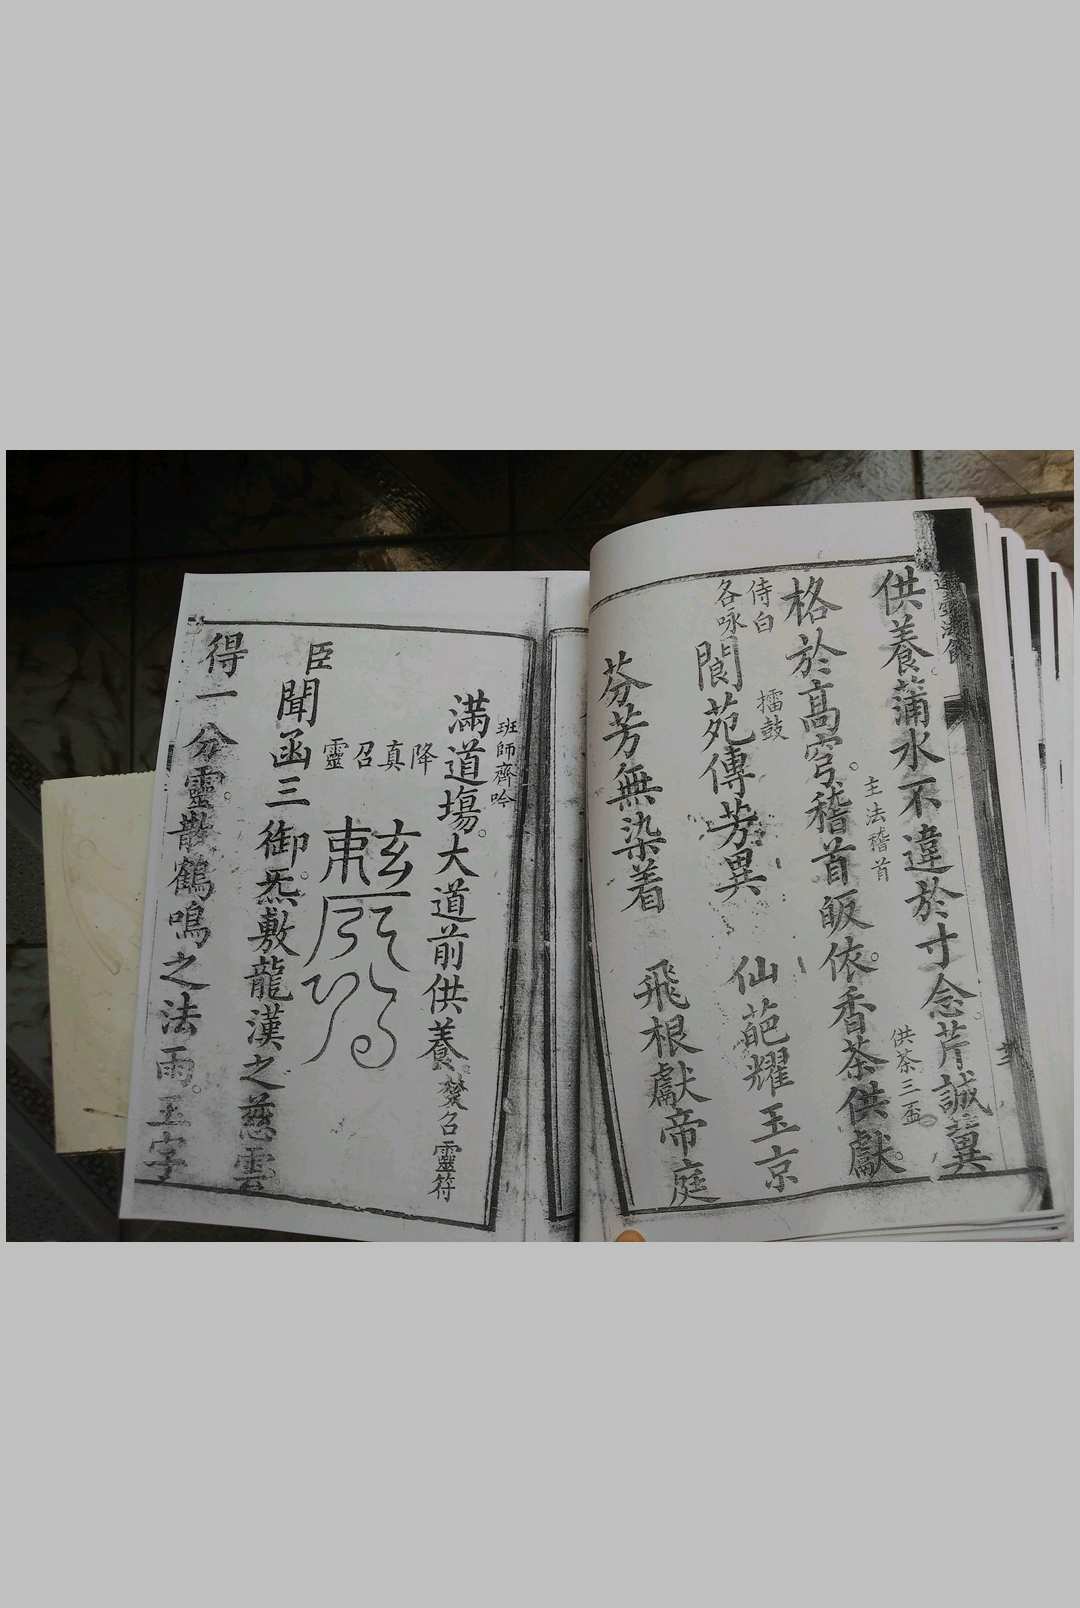 供養。蒲水不違於寸念。芹誠冀
格於高穹。稽首皈依。香茶供獻。
主法稽首
供茶三盃。
侍白
各咏
擂鼓
閬苑傳芳異 仙葩耀玉京
芬芳無染着 飛根獻帝庭
班師齊吟
滿道塲。大道前供養。焚召靈符
降真召靈
臣聞函三御炁。敷龍漢之慈雲
得一分靈。散鶴鳴之法雨。玉字